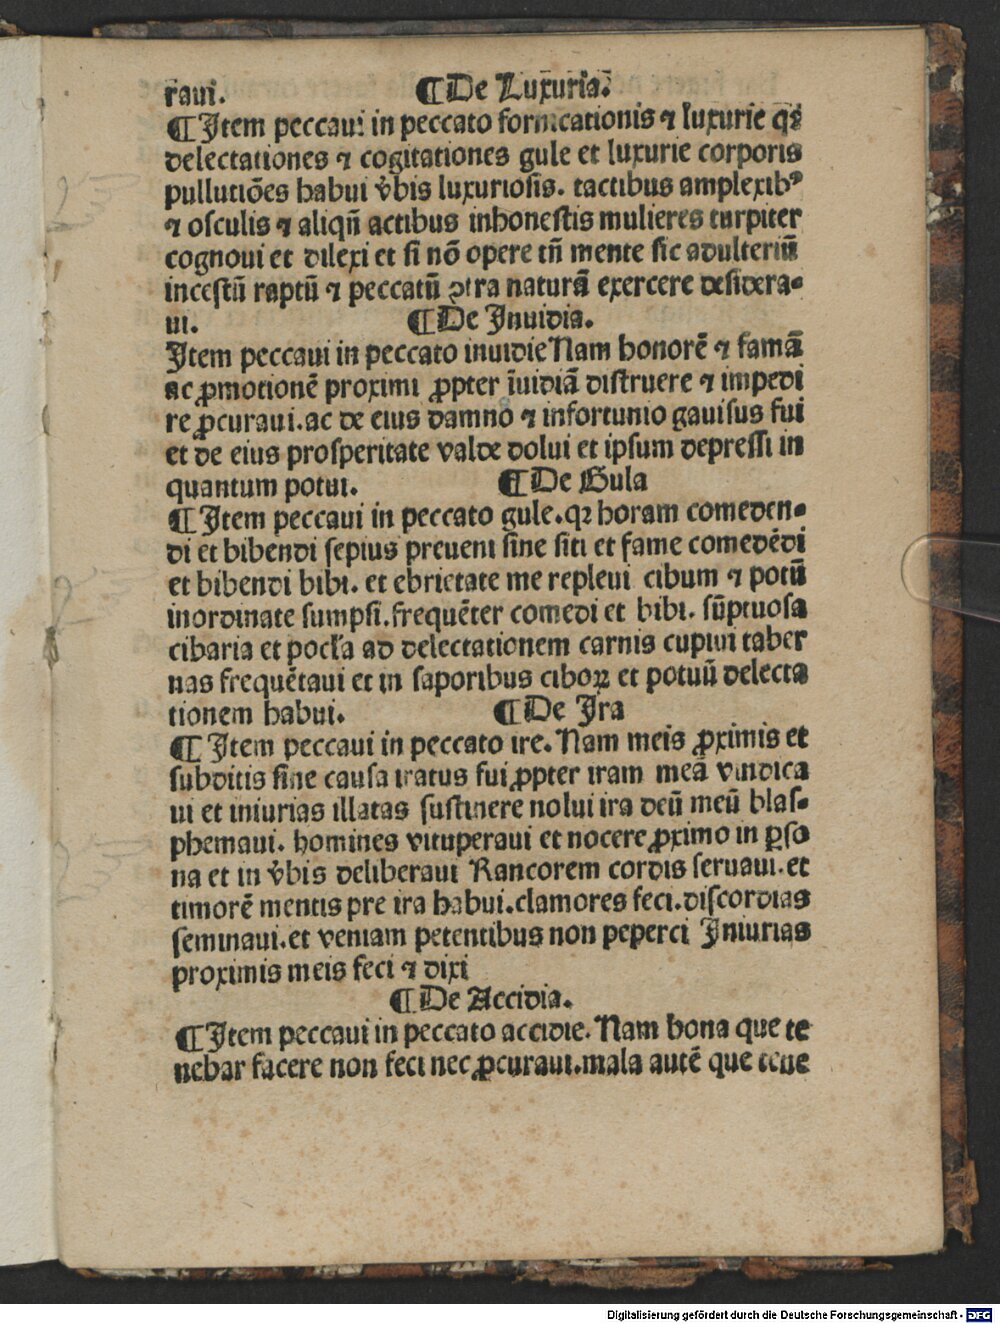 raui. ¶De Luxuria.
¶Item peccaui in peccato fornicationis ⁊ luxurie qꝛ
delectationes ⁊ cogitationes gule et luxurie corporis
pullutiões habui v̓bis luxuriosis. tactibus amplexibꝰ
⁊ osculis ⁊ aliqñ actibus inhonestis mulieres turpiter
cognoui et dilexi et si nõ opere tñ mente sic adulteriũ
incestũ raptũ ⁊ peccatũ ꝯtra naturã exercere desidera⸗
ui. ¶De Inuidia.
Item peccaui in peccato inuidie Nam honorẽ ⁊ famã
ac ꝓmotionẽ proximi ꝓpter ĩuidiã distruere ⁊ impedi
re ꝓcuraui. ac de eius damno ⁊ infortunio gauisus fui
et de eius prosperitate valde dolui et ipsum depressi in
quantum potui. ¶De Gula
¶Item peccaui in peccato gule. qꝛ horam comeden⸗
di et bibendi sepius preueni sine siti et fame comedẽdi
et bibendi bibi. et ebrietate me repleui cibum ⁊ potũ
inordinate sumpsi. frequẽter comedi et bibi. sũptuosa
cibaria et pocl̓a ad delectationem carnis cupiui taber
nas frequẽtaui et in saporibus ciboꝝ et potuũ delecta
tionem habui. ¶De Ira
¶Item peccaui in peccato ire. Nam meis ꝓximis et
subditis sine causa iratus fui ꝓpter iram meã vindica
ui et iniurias illatas sustinere nolui ira deũ meũ blas⸗
phemaui. homines vituperaui et nocere ꝓximo in ꝑso
na et in v̓bis deliberaui Rancorem cordis seruaui. et
timorẽ mentis pre ira habui. clamores feci. discordias
seminaui. et veniam petentibus non peperci Iniurias
proximis meis feci ⁊ dixi
¶De Accidia.
¶Item peccaui in peccato accidie. Nam bona que te
nebar facere non feci nec ꝓcuraui. mala autẽ que tene
Digitalisierung gefördert durch die Deutsche Forschungsgemeinschaft - DFG